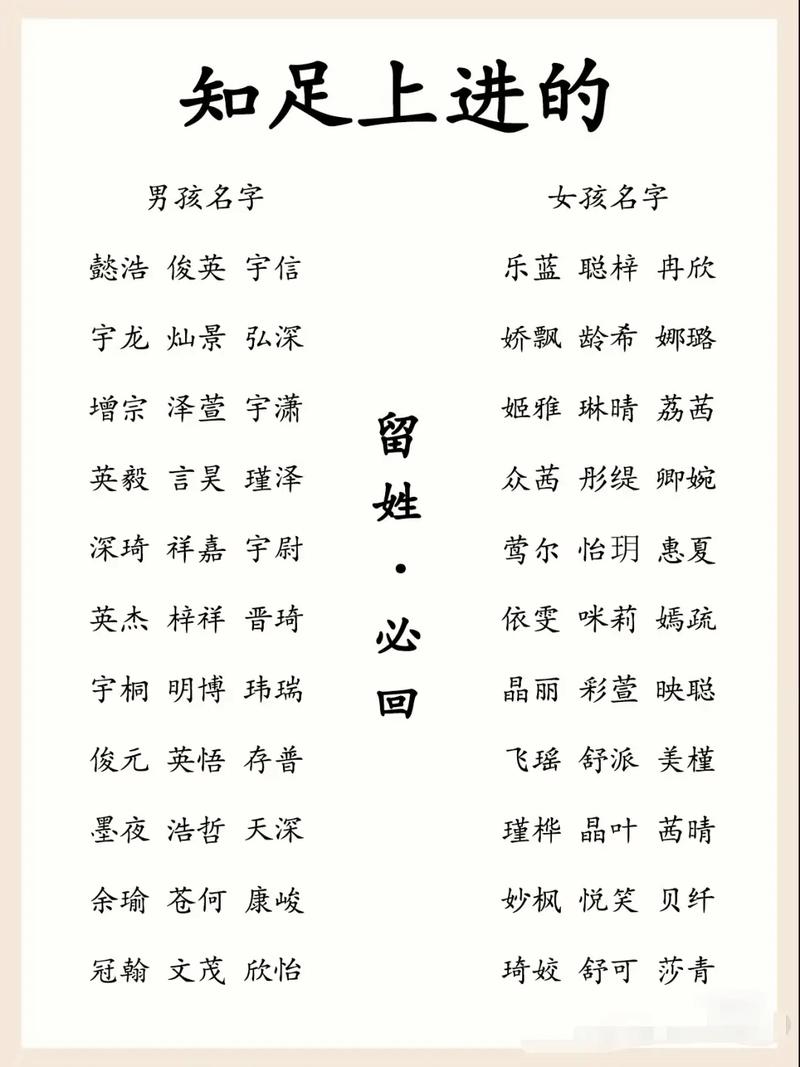 知足上进的
男孩名字
懿浩 俊英 宇信
宇龙 灿景 弘深
增宗 泽萱 宇潇
英毅 言昊 瑾泽
深琦 祥嘉 宇尉
英杰 梓祥 晋琦
宇桐 明博 玮瑞
俊元 英悟 存普
墨夜 浩哲 天深
余瑜 苍何 康峻
冠翰 文茂 欣怡
留姓·必回
女孩名字
乐蓝 聪梓 冉欣
娇飘 龄希 娜璐
姬雅 琳晴 荔茜
众茜 彤缇 卿婉
莺尔 怡玥 惠夏
依雯 咪莉 嫣疏
晶丽 彩萱 映聪
飞瑶 舒派 美槿
瑾桦 晶叶 茜晴
妙枫 悦笑 贝纤
琦姣 舒可 莎青